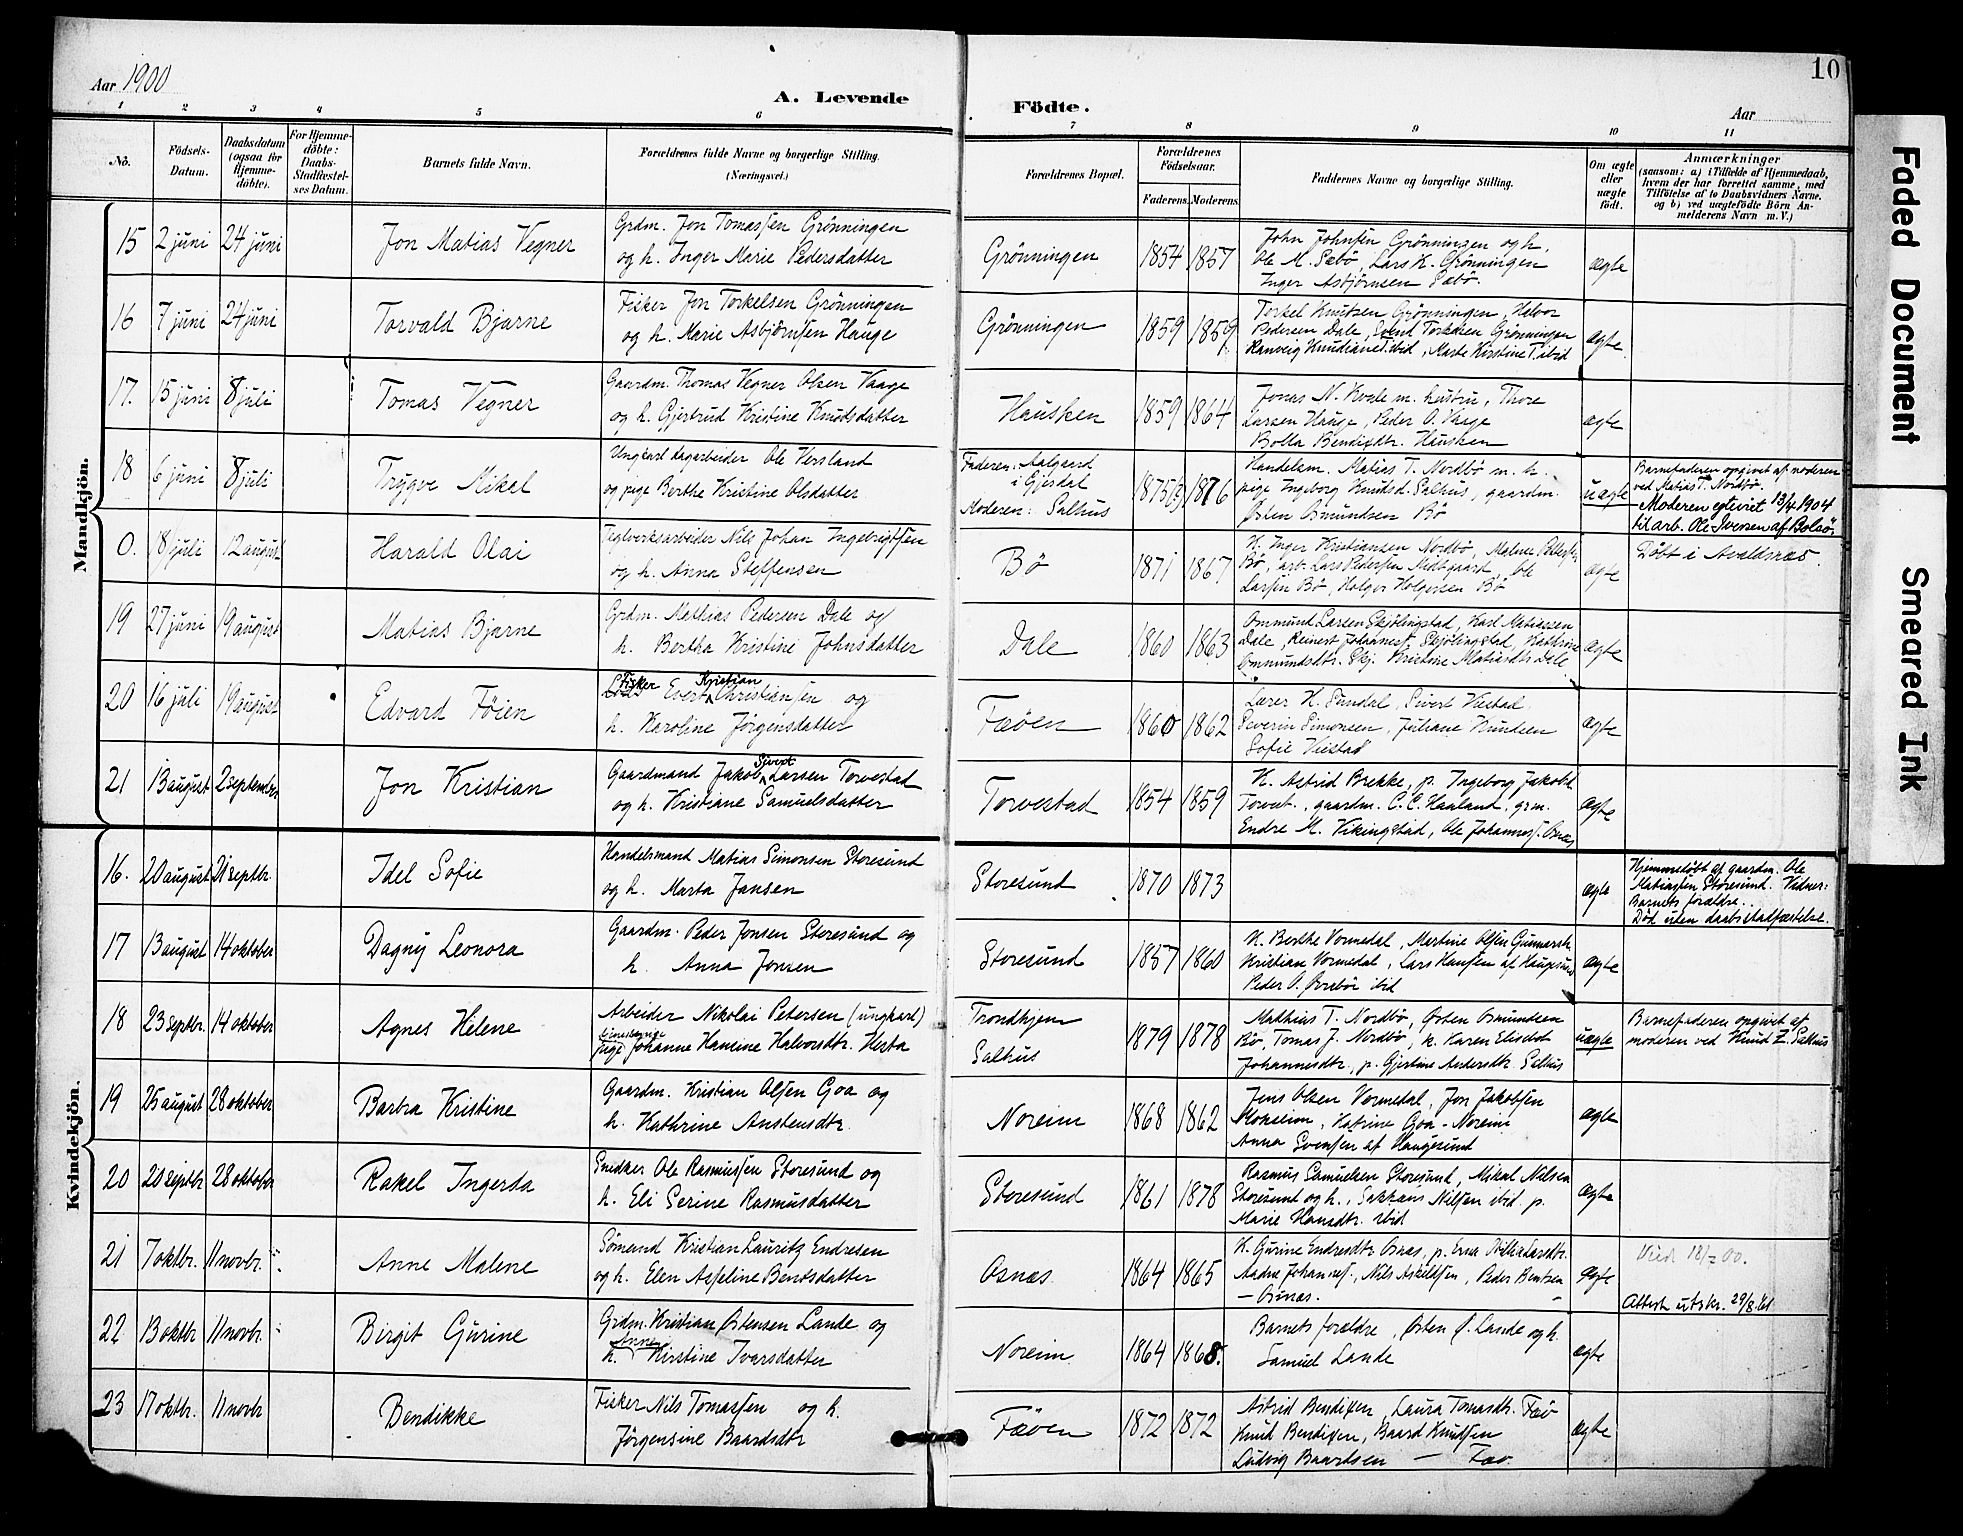 10
Aar 1900
A. Levende
Fødte.
Aar
1 2 3 4 5 6 7 8 9 10 11
No.
Fødsels-
Datum.
Daabsdatum
(ogsaa for
Hjemme-
døbte).
For Hjemme-
døbte:
Daabs-
Stadfæstel-
ses Datum.
Barnets fulde Navn.
Forældrenes fulde Navne og borgerlige Stilling.
(Næringsvei.)
Forældrenes Bopæl.
Forældrenes
Fødselsaar.
Faderens. Moderens.
Faddernes Navne og borgerlige Stilling.
Om ægte
eller
uægte
født.
Anmærkninger
(saasom: a) i Tilfælde af Hjemmedaab,
hvem der har forrettet samme, med
Tilføielse af to Daabsvidners Navne,
og b) ved uægtefødte Børn An-
melderens Navn m. V.)
Mandkjön.
15 2 juni 24 juni Jon Matias Vegner
Grdm. Jon Tomassen Grönningen
og h. Inger Marie Pedersdatter
Grönningen 1854 1857
John Johnsen Grönningen og h.
Ole M. Sæbö, Lars K. Grönningen
Inger Asbjørnsen Sæbö.
ægte
16 7 juni 24 juni Torvald Bjarne
Fisker Jon Torkelsen Grönningen
og h. Marie Asbjörnsen Hauge
Grönningen 1859 1859
Torkel Knutsen Grönningen, Halvor
Pedersen Dale, Svend Torkelsen Grönningen
Ranveig Knudiane T. ibid, Marte Kirstine T. ibid
ægte
17. 15 juni 8 juli Tomas Vegner
Gaardm. Thomas Vegner Olsen Vaage
og h. Gjertrud Kristine Knudsdatter
Hausken 1859 1864
Jonas N. Kvale m. hustru, Thore
Larsen Hauge, Peder O. Vaage
Bolla Bendixdtr. Hausken
ægte
18 6 juni 8 juli Trygve Mikal
Ungkarl dagarbeider Ole Versland
og pige Berthe Kristine Olsdatter
Faderen: Aalgaard
i Gjesdal
Moderen: Salhus
1875/3 1876
Handelsm. Matias T. Nordbö m. h.
pige Ingeborg Knudsd. Salhus, gaardm.
Østen Osmundsen Bö
uægte
Barnefaderen opgivet af moderen
ved Matias T. Nordbö.
Moderen egteviet 13/4 1904
til arb. Ole Iversen af Bolsö.
0. 8 juli 12 august Harald Olai
Teglverksarbeider Nils Johan Ingebrigtsen
og h. Anna Steffensen
Bö 1871 1867
K. Inger Kristiansen Nordbö, Malene
Bö, arb. Lars Pedersen Nedtgaard, Ole
Larsen Bö, Holger Holgersen Bö
ægte
Döbt i Avaldsnæs.
19 27 juni 19 august Matias Bjarne
Grdm. Mathias Pedersen Dale og
h. Bertha Kristine Johnsdatter
Dale 1860 1863
Ommund Larsen Skjölingstad, Karl Matiassen
Dale, Reinert Johannes. Skjölingstad, Kathrine
Ommundsdtr. Skj. Kristine Matiasdtr. Dale
ægte
20 16 juli 19 august Edvard Föien
Fisker Evert Kristian Christiansen og
h. Karoline Jörgensdatter
Fæöen 1860 1862
Lærer K. Sundal, Sivert Viestad,
Severin Simonsen, Juliane Knudsen
Sofie Viestad
ægte
21 13 august 2 september Jon Kristian
Gaardmand Jakob Sivert Larsen Torvestad
og h. Kristiane Samuelsdatter
Torvestad 1854 1859
K. Astrid Brekke, p. Ingeborg Jakobd.
Torvest., gaardm. C. C. Haaland, grm.
Endre M. Vikingstad, Ole Johannes. Osnæs
ægte
Kvindekjön.
16. 20 august 21 septbr. Idel Sofie
Handelsmand Matias Simonsen Storesund
og h. Marta Jansen
Storesund 1870 1873
ægte
Hjemmedöbt af gaardm. Ole
Matiassen Storesund. Vidner:
Barnets forældre.
Död uten daabstadfæstelse.
17 13 august 14 oktober Dagny Leonora
Gaardm. Peder Jonsen Storesund og
h. Anna Jonsen
Storesund 1857 1860
K. Berthe Vormedal, Martine Olsen
Kristian Vormedal, Lars Hansen af Haugesund
Peder O. Øvrebö ibid
ægte
18 23 septbr. 14 oktober Agnes Helene
Arbeider Nikolai Petersen (ungkarl)
pige Johanne Hansine Halvorsdtr. Versta
Trondhjem
Salhus
1879 1878
Mathias T. Nordbö, Østen Osmundsen
Bö, Tomas J. Nordbö, k. Karen Elisabet
Johannesdtr., p. Gjertine Andersdtr. Salhus
uægte
Barnefaderen opgivet af
moderen ved Knud L. Salhus
19 25 august 28 oktober Barbra Kristine
Gaardm. Kristian Olsen Goa og
h. Kathrine Anstensdtr.
Noreim 1868 1862
Jens Olsen Vormedal, Jon Jakobsen
Moksheim, Katrine Goa - Noreim
Anna Svensen af Haugesund
ægte
20 20 septbr 28 oktober Rakel Ingerda
Snedker Ole Rasmussen Storesund og
h. Eli Serine Rasmusdatter
Storesund 1861 1878
Rasmus Samuelsen Storesund, Mikal Nilsen
Storesund og h., Sakkaus Nilsen ibid. p.
Marie Hansdtr. ibid
ægte
21 7 oktbr. 11 novbr. Anne Malene
Sömand Kristian Lauritz Endresen
og h. Elen Asseline Bentsdatter
Osnæs 1864 1865
K. Gurine Endresdtr Osnæs, p. Erna
Andre Johannes., Nils Askildsen, Peder Bentsen
— Osnæs.
ægte
Attest utskr. 29/8.61
22 13 oktbr 11 novbr. Birgit Gurine
Grdm. Kristian Østensen Lande og
h. Anna Kirstine Ivarsdatter
Noreim 1864 1868.
Barnets forældre, Østen J. Lande og h.
Samuel Lande
ægte
23 17 oktbr. 11 novbr Bendikke
Fisker Nils Tomassen og h.
Jörgensine Baardsdtr
Fæöen 1872 1872
Astrid Bendixen, Laura Tomasdtr. Fæö
Knud Bendixen, Baard Knudsen
Ludvig Baardsen — Fæö
ægte
Faded Document
Smeared Ink